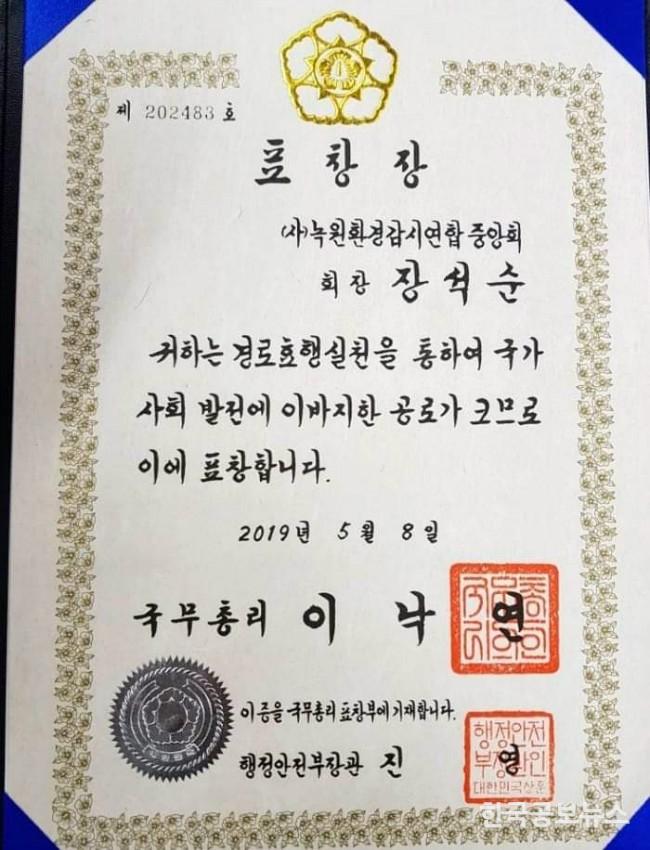 제 202483 호
표 창 장
(사)녹원환경감시연합 중앙회
회 장 장 석 순
귀하는 경로효행실천을 통하여 국가
사회 발전에 이바지한 공로가 크므로
이에 표창합니다.
2019년 5월 8일
국무총리 이 낙 연
이 증을 국무총리 표창부에 기재합니다.
행정안전부장관 진 영
행정안전
부장관인
대한민국상훈
한국공보뉴스